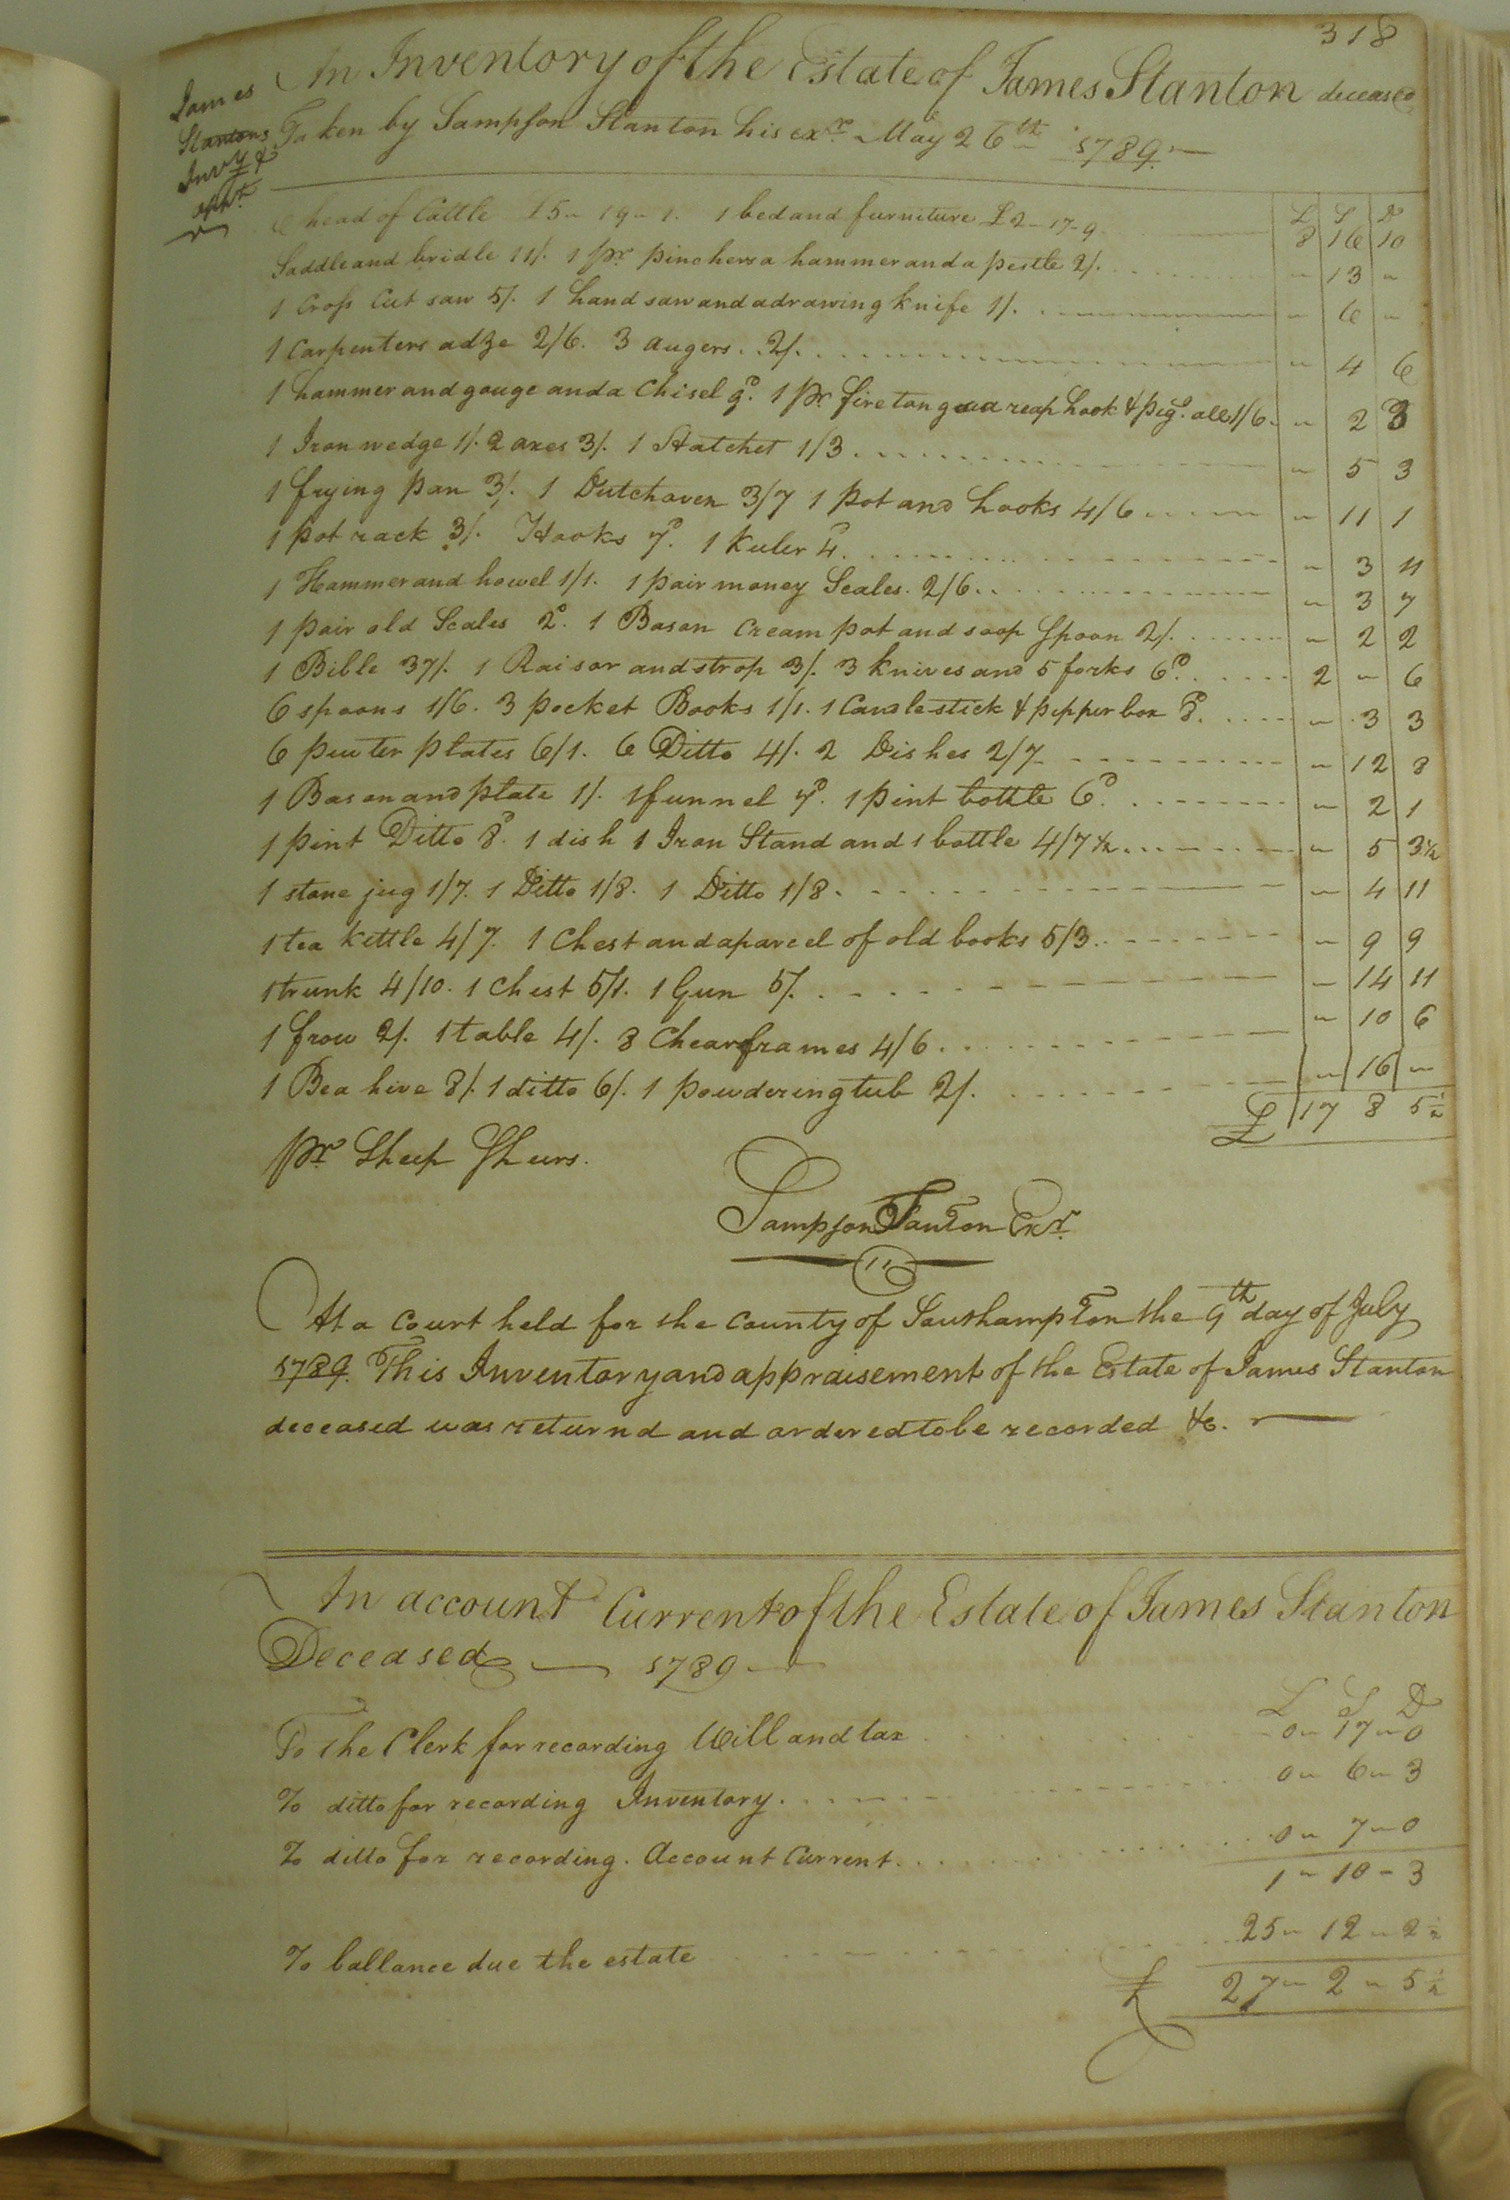 318
James
Stantons
Invy &
appt.
An Inventory of the Estate of James Stanton deceased
Taken by Sampson Stanton his exr. May 26th 1789.
£ S D
6 head of Cattle £5 - 19 - 1. 1 bed and furniture £2 - 17 - 9 8 16 10
Saddle and bridle 11/. 1 pr pinchers a hammer and a pestle 2/. " 13 "
1 Cross Cut saw 5/. 1 hand saw and a drawing knife 1/. " 6 "
1 Carpenters adze 2/6. 3 augers.. 2/. " 4 6
1 hammer and gouge and a Chisel 9d. 1 pr. fire tongs a reap hook & pegs. all 1/6. " 2 3
1 Iron wedge 1/. 2 axes 3/. 1 Hatchet 1/3 " 5 3
1 frying pan 3/. 1 Dutch oven 3/7 1 pot and hooks 4/6 " 11 1
1 pot rack 3/. Hooks 7d. 1 Kuler 4d. " 3 11
1 Hammer and howel 1/1. 1 pair money Scales. 2/6 " 3 7
1 pair old Scales 2d. 1 Bason Cream pot and soop Spoon 2/. " 2 2
1 Bible 37/. 1 Raisor and strop 3/. 3 knives and 5 forks 6d. 2 " 6
6 spoons 1/6. 3 pocket Books 1/1. 1 Candlestick & pepper box 8d. " 3 3
6 pewter plates 6/1. 6 Ditto 4/. 2 Dishes 2/7 " 12 8
1 Bason and plate 1/. 1 funnel 7d. 1 pint bottle 6d. " 2 1
1 pint Ditto 8d. 1 dish 1 Iron Stand and 1 bottle 4/7½ " 5 3½
1 stone jug 1/7. 1 Ditto 1/8. 1 Ditto 1/8. " 4 11
1 tea Kettle 4/7. 1 Chest and a parcel of old books 5/3. " 9 9
1 trunk 4/10. 1 Chest 5/1. 1 Gun 5/. " 14 11
1 frow 2/. 1 table 4/. 8 Chear frames 4/6. " 10 6
1 Bea hive 8/. 1 ditto 6/. 1 powdering tub 2/. " 16 "
£ 17 8 5½
pr Sheep Shears.
Sampson Stanton Exr.
At a Court held for the County of Southampton the 9th day of July
1789. This Inventory and appraisement of the Estate of James Stanton
deceased was returnd and ordered to be recorded &c.
An account Current of the Estate of James Stanton
Deceased 1789
£ S D
To the Clerk for recording Will and tax 0 - 17 - 0
To ditto for recording Inventory. 0 - 6 - 3
To ditto for recording. Account Current. 0 - 7 - 0
1 - 10 - 3
To ballance due the estate 25 - 12 - 2½
£ 27 - 2 - 5½